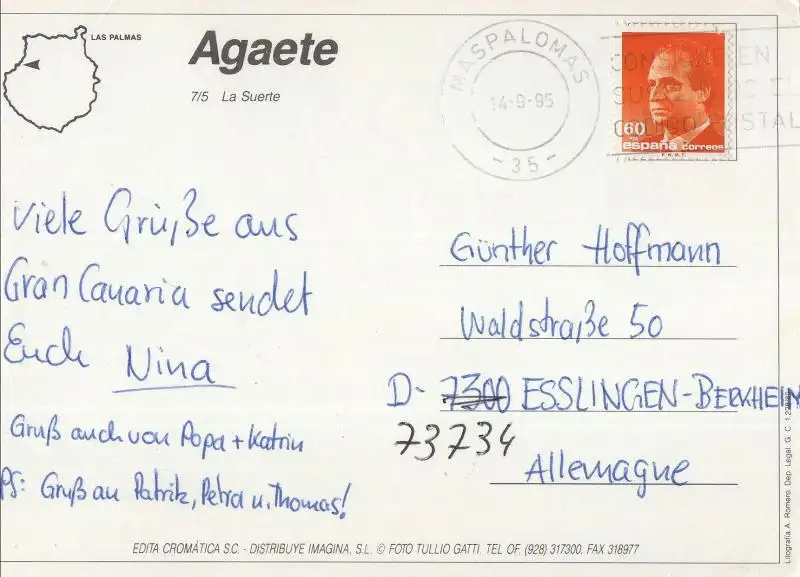 LAS PALMAS
Agaete
7/5 La Suerte
MASPALOMAS
14-9-95
- 35 -
CODIGO POSTAL
60
españa correos
F.N.M.T.
Viele Grüße aus
Gran Canaria sendet
Euch Nina
Gruß auch von Papa + Katrin
PS: Gruß an Patrik, Petra u. Thomas!
Günther Hoffmann
Waldstraße 50
D- 7300 ESSLINGEN-BERKHEIM
73734
Allemagne
EDITA CROMÁTICA S.C. - DISTRIBUYE IMAGINA, S.L. © FOTO TULLIO GATTI. TEL OF. (928) 317300. FAX 318977
Litografía A. Romero. Dep. Legal. G. C.